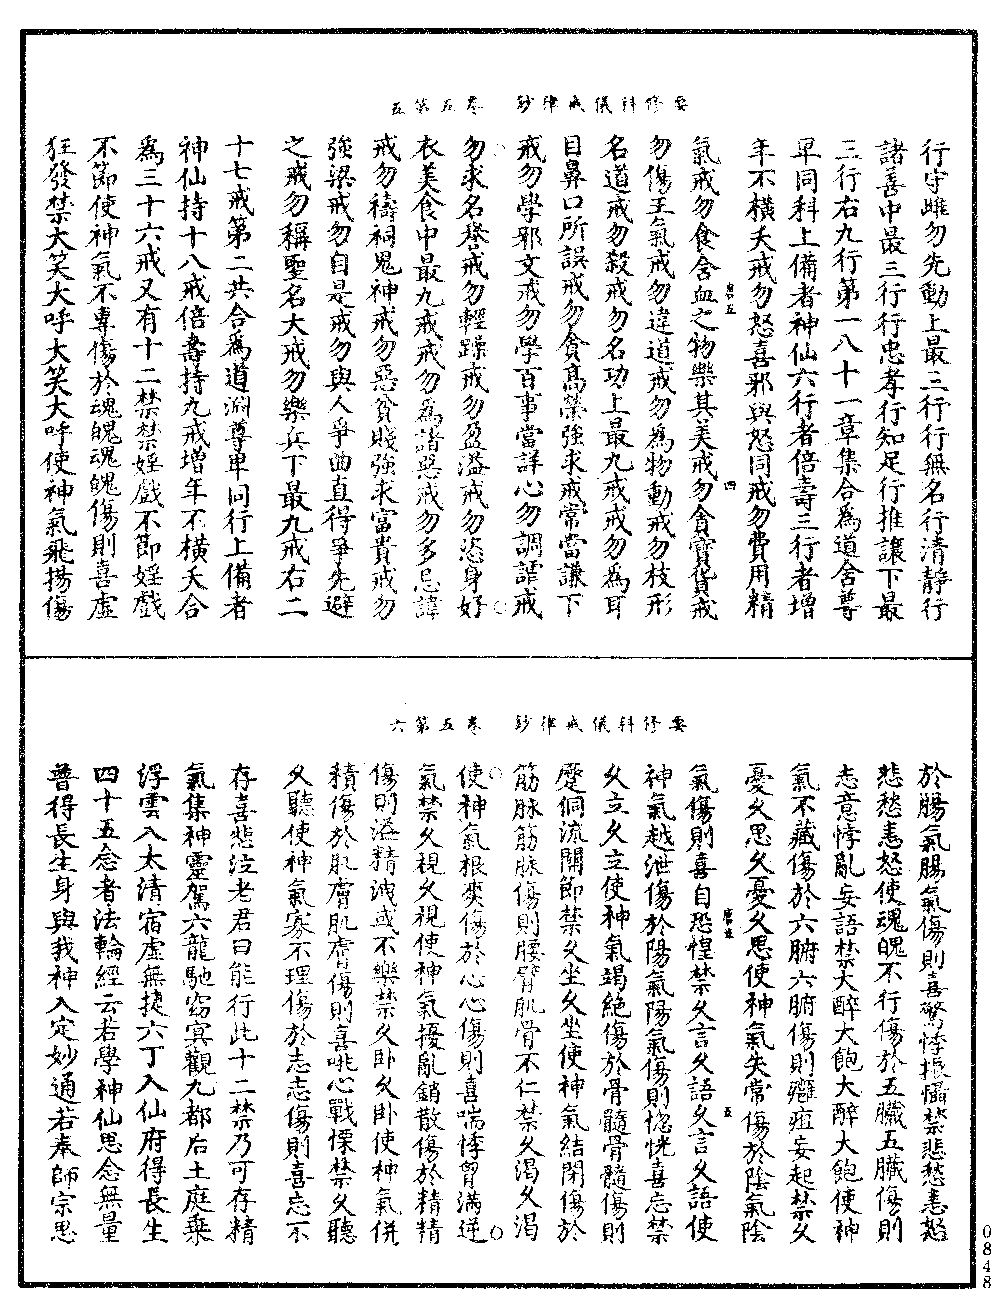 要修科儀戒律鈔　卷五第五
行守雌勿先動上最三行行無名行清靜行
諸善中最三行行忠孝行知足行推讓下最
三行右九行第一八十一章集合為道舍尊
卑同科上備者神仙六行者倍壽三行者增
年不橫夭戒勿怒喜邪與怒同戒勿費用精
氣戒勿食含血之物樂其美戒勿貪寶貨戒
勿傷王氣戒勿違道戒勿為物動戒勿枝形
名道戒勿殺戒勿名功上最九戒戒勿為耳
目鼻口所誤戒勿貪高榮強求戒常當謙下
戒勿學邪文戒勿學百事當詳心勿調謔戒
勿求名譽戒勿輕躁戒勿盈溢戒勿恣身好
衣美食中最九戒戒勿為諸惡戒勿多忌諱
戒勿禱祠鬼神戒勿惡貧賤強求富貴戒勿
強梁戒勿自是戒勿與人爭曲直得爭先避
之戒勿稱聖名大戒勿樂兵下最九戒右二
十七戒第二共合為道淵尊卑同行上備者
神仙持十八戒倍壽持九戒增年不橫夭合
為三十六戒又有十二禁禁婬戲不節婬戲
不節使神氣不專傷於魂魄魂魄傷則喜虛
狂發禁大笑大呼大笑大呼使神氣飛揚傷
要修科儀戒律鈔　卷五第六
於腸氣腸氣傷則喜驚悸振懾禁悲愁恚怒
悲愁恚怒使魂魄不行傷於五臟五臟傷則
志意悖亂妄語禁大醉大飽大醉大飽使神
氣不藏傷於六腑六腑傷則癰疽妄起禁久
憂久思久憂久思使神氣失常傷於陰氣陰
氣傷則喜自恐惶禁久言久語久言久語使
神氣越泄傷於陽氣陽氣傷則惚恍喜忘禁
久立久立使神氣竭絕傷於骨髓骨髓傷則
蹙侗流關節禁久坐久坐使神氣結閉傷於
筋脉筋脉傷則腰臂肌骨不仁禁久渴久渴
使神氣根爽傷於心心傷則喜喘悸胷滿逆
氣禁久視久視使神氣擾亂銷散傷於精精
傷則溢精洩或不樂禁久卧久卧使神氣併
積傷於肌膚肌膚傷則喜咷心戰慄禁久聽
久聽使神氣寡不理傷於志志傷則喜忘不
存喜悲泣老君曰能行此十二禁乃可存精
氣集神靈駕六龍馳窈冥觀九都后土庭乘
浮雲入太清宿虛無捷六丁入仙府得長生
四十五念者法輪經云若學神仙思念無量
普得長生身與我神入定妙通若奉師宗思
0848